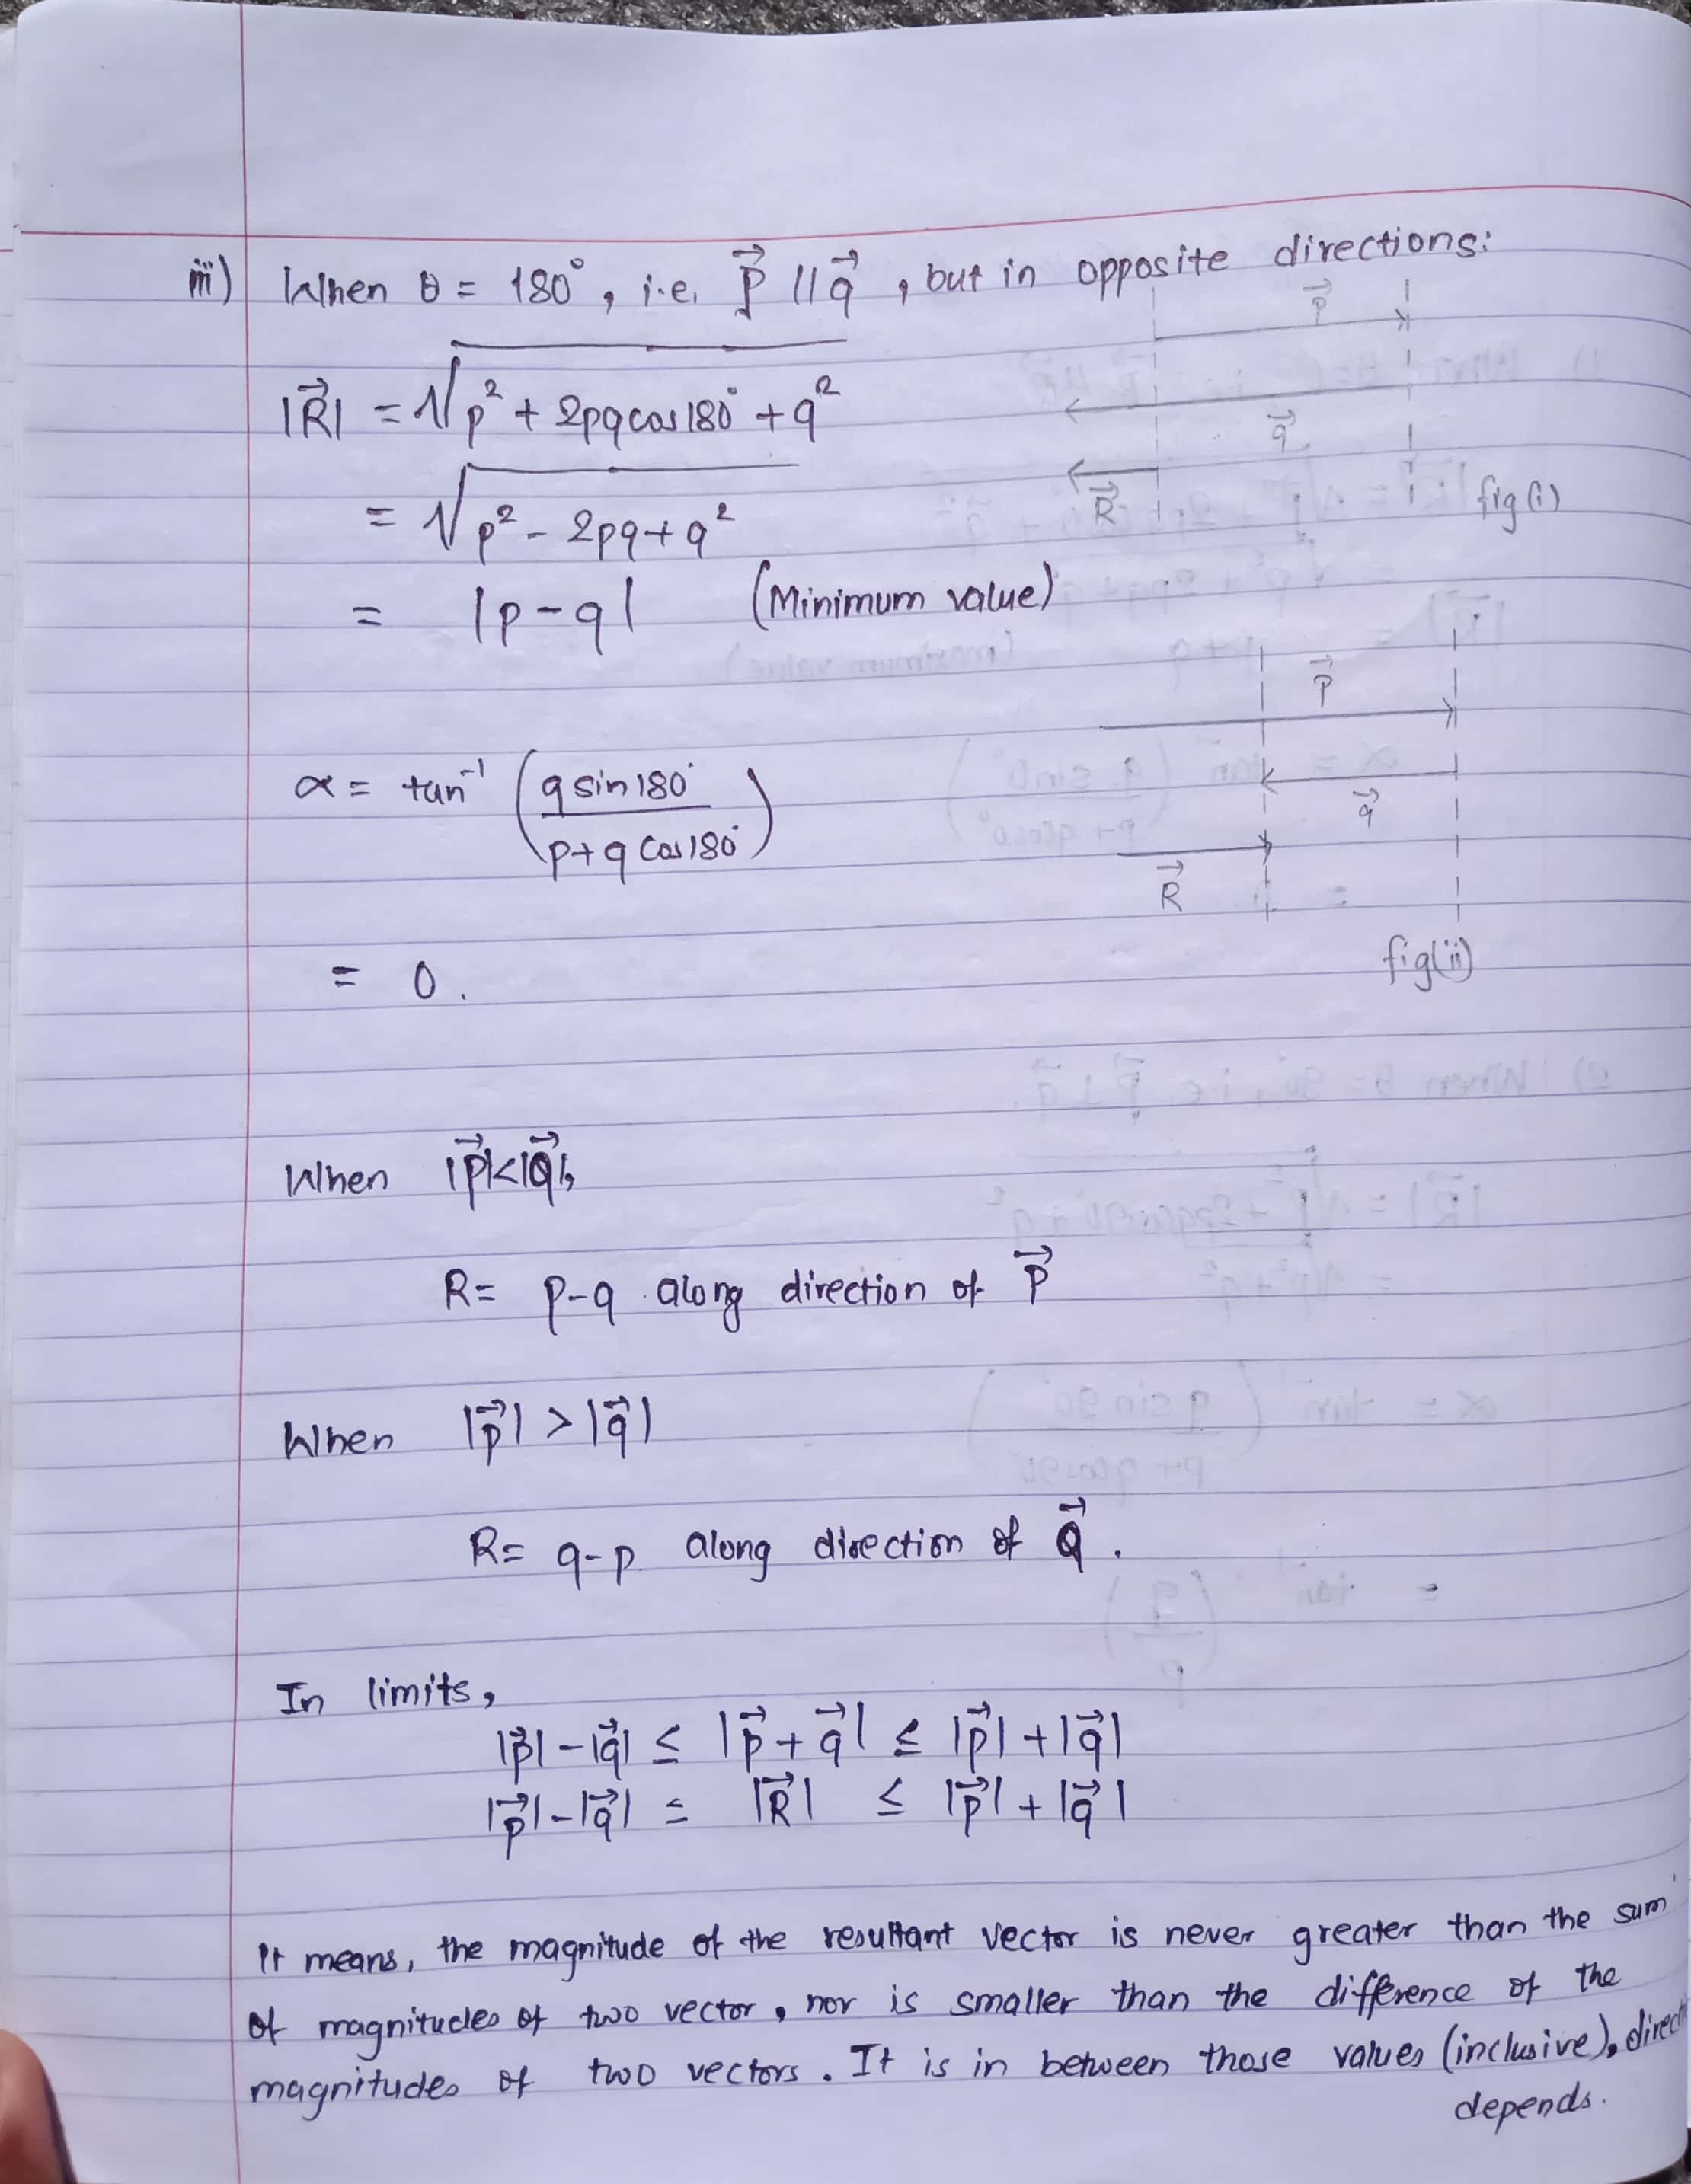 iii) When θ = 180°, i.e. p⃗ || q⃗ , but in opposite directions:
|R⃗| = √(p² + 2pq cos 180° + q²)
= √(p² - 2pq + q²)
= |p - q| (Minimum value)
p⃗
q⃗
R⃗
fig (i)
α = tan⁻¹ (q sin 180° / p + q cos 180°)
= 0.
p⃗
q⃗
R⃗
fig (ii)
When |p⃗|<|Q⃗|,
R = p - q along direction of p⃗
When |p⃗| > |q⃗|
R = q - p along direction of Q⃗.
In limits,
|p⃗| - |q⃗| ≤ |p⃗ + q⃗| ≤ |p⃗| + |q⃗|
|p⃗| - |q⃗| ≤ |R⃗| ≤ |p⃗| + |q⃗|
It means, the magnitude of the resultant vector is never greater than the sum
of magnitudes of two vector, nor is smaller than the difference of the
magnitudes of two vectors. It is in between those values (inclusive),
depends.